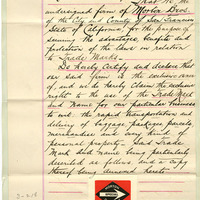 That we, the
undersigned firm of Morton Bros.
of the City and County of San Francisco
State of California, for the purpose of
securing the advantages and
jurisdiction of the laws in relation
to Trade Marks
Do hereby Certify and declare that
our said firm is the exclusive owner
of, and we do hereby Claim the exclusive
right to the use of the Trade Mark
and Name for our particular business
to wit: the rapid transportation and
delivery of baggage packages parcels,
merchandise and every kind of
personal property - Said Trade
Mark and Name being particularly
described as follows, and a copy
thereof being annexed hereto.